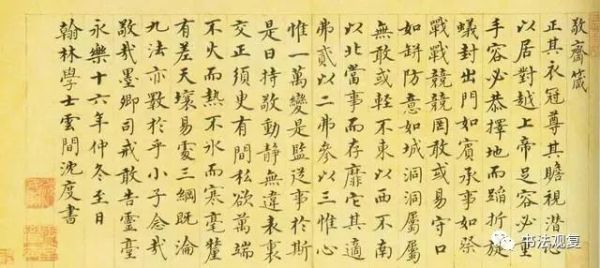 敬齋箴
正其衣冠尊其瞻視潛心
以居對越上帝足容必重
手容必恭擇地而蹈折旋
蟻封出門如賓承事如祭
戰戰兢兢罔敢或易守口
如缾防意如城洞洞屬屬
無敢或輕不東以西不南
以北當事而存靡它其適
弗貳以二弗參以三惟心
惟一萬變是監從事於斯
是曰持敬動靜無違表裏
交正須臾有間私欲萬端
不火而熱不冰而寒毫釐
有差天壤易處三綱既淪
九法亦斁於乎小子念哉
敬哉墨卿司戒敢告靈臺
永樂十六年仲冬至日
翰林學士雲間沈度書
书法观复